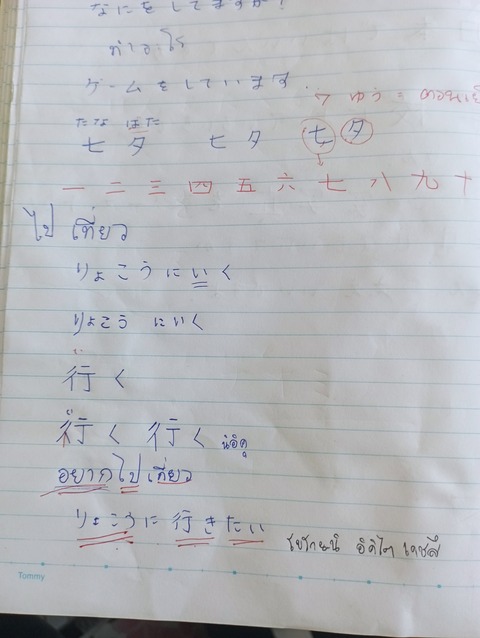 なにをしてますか?
ทำอะไร
ゲームをしています
7 ゆう = ตอนเย็
たな ばた
七 夕 七 夕 七 夕
一 二 三 四 五 六 七 八 九 十
ไป เที่ยว
りょこうにいく
りょこう にいく
行く
行く 行く นิอิคุ
อยากไปเที่ยว
りょこうに行きたい
Tommy